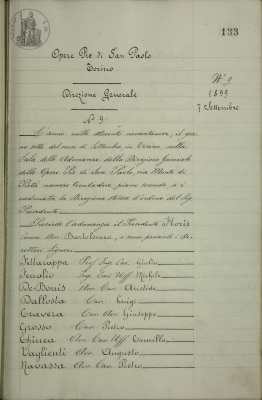 133
Opere Pie di San Paolo
Torino
Direzione Generale
N° 9
1899
7 Settembre
N° 9
L'anno mille ottocento novantanove, il gior-
no sette del mese di Settembre in Torino, nella
Sala delle Adunanze della Direzione Generale
delle Opere Pie di San Paolo, via Monte di
Pietà numero trentadue, piano secondo si è
radunata la Direzione stessa d'ordine del Sig.
Presidente.
Presiede l'adunanza il Presidente Floris
Comm. Avv. Bartolomeo, e sono presenti i Di-
rettori Signori
Fettarappa Prof. Ing. Cav. Giulio
Fenolio Ing. Cav. Uff. Michele
De-Bonis Avv. Cav. Aristide
Dallosta Cav. Luigi
Cravera Cav. Avv. Giuseppe
Grosso Cav. Pietro
Chiesa Avv. Cav. Uff. Camillo
Vaglienti Avv. Augusto
Navassa Avv. Cav. Pietro